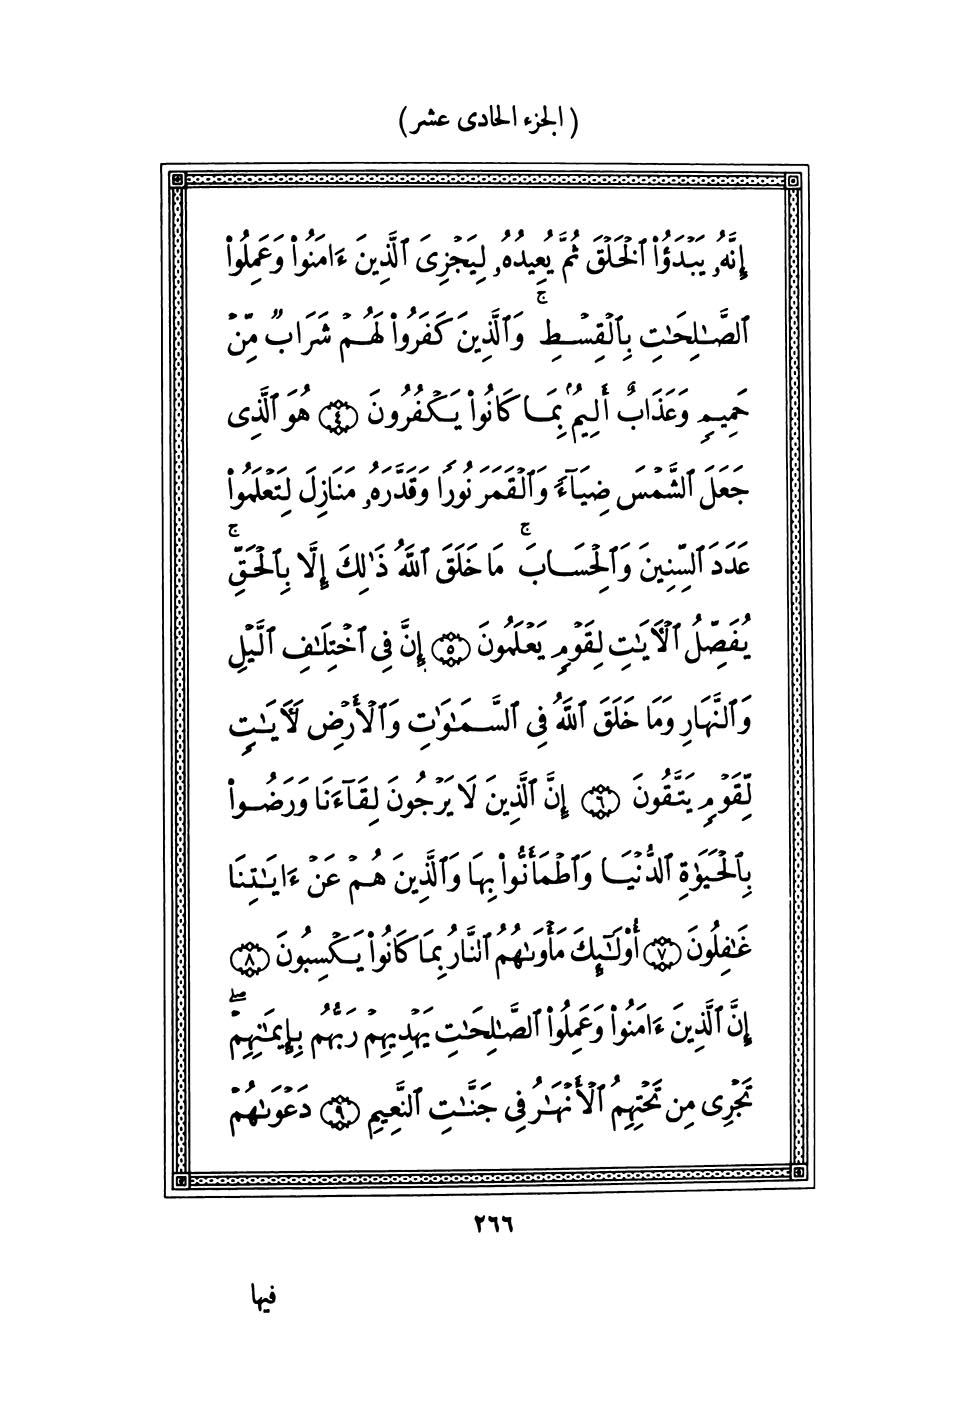 (الجزء الحادى عشر)
إِنَّهُۥ يَبْدَؤُا۟ ٱلْخَلْقَ ثُمَّ يُعِيدُهُۥ لِيَجْزِىَ ٱلَّذِينَ ءَامَنُوا۟ وَعَمِلُوا۟
ٱلصَّـٰلِحَـٰتِ بِٱلْقِسْطِ ۚ وَٱلَّذِينَ كَفَرُوا۟ لَهُمْ شَرَابٌ مِّنْ
حَمِيمٍ وَعَذَابٌ أَلِيمٌۢ بِمَا كَانُوا۟ يَكْفُرُونَ ٤ هُوَ ٱلَّذِى
جَعَلَ ٱلشَّمْسَ ضِيَآءً وَٱلْقَمَرَ نُورًا وَقَدَّرَهُۥ مَنَازِلَ لِتَعْلَمُوا۟
عَدَدَ ٱلسِّنِينَ وَٱلْحِسَابَ ۚ مَا خَلَقَ ٱللَّهُ ذَٰلِكَ إِلَّا بِٱلْحَقِّ ۚ
يُفَصِّلُ ٱلْـَٔايَـٰتِ لِقَوْمٍ يَعْلَمُونَ ٥ إِنَّ فِى ٱخْتِلَـٰفِ ٱلَّيْلِ
وَٱلنَّهَارِ وَمَا خَلَقَ ٱللَّهُ فِى ٱلسَّمَـٰوَٰتِ وَٱلْأَرْضِ لَـَٔايَـٰتٍ
لِّقَوْمٍ يَتَّقُونَ ٦ إِنَّ ٱلَّذِينَ لَا يَرْجُونَ لِقَآءَنَا وَرَضُوا۟
بِٱلْحَيَوٰةِ ٱلدُّنْيَا وَٱطْمَأَنُّوا۟ بِهَا وَٱلَّذِينَ هُمْ عَنْ ءَايَـٰتِنَا
غَـٰفِلُونَ ٧ أُو۟لَـٰٓئِكَ مَأْوَىٰهُمُ ٱلنَّارُ بِمَا كَانُوا۟ يَكْسِبُونَ ٨
إِنَّ ٱلَّذِينَ ءَامَنُوا۟ وَعَمِلُوا۟ ٱلصَّـٰلِحَـٰتِ يَهْدِيهِمْ رَبُّهُم بِإِيمَـٰنِهِمْ ۖ
تَجْرِى مِن تَحْتِهِمُ ٱلْأَنْهَـٰرُ فِى جَنَّـٰتِ ٱلنَّعِيمِ ٩ دَعْوَىٰهُمْ
٢٦٦
فيها